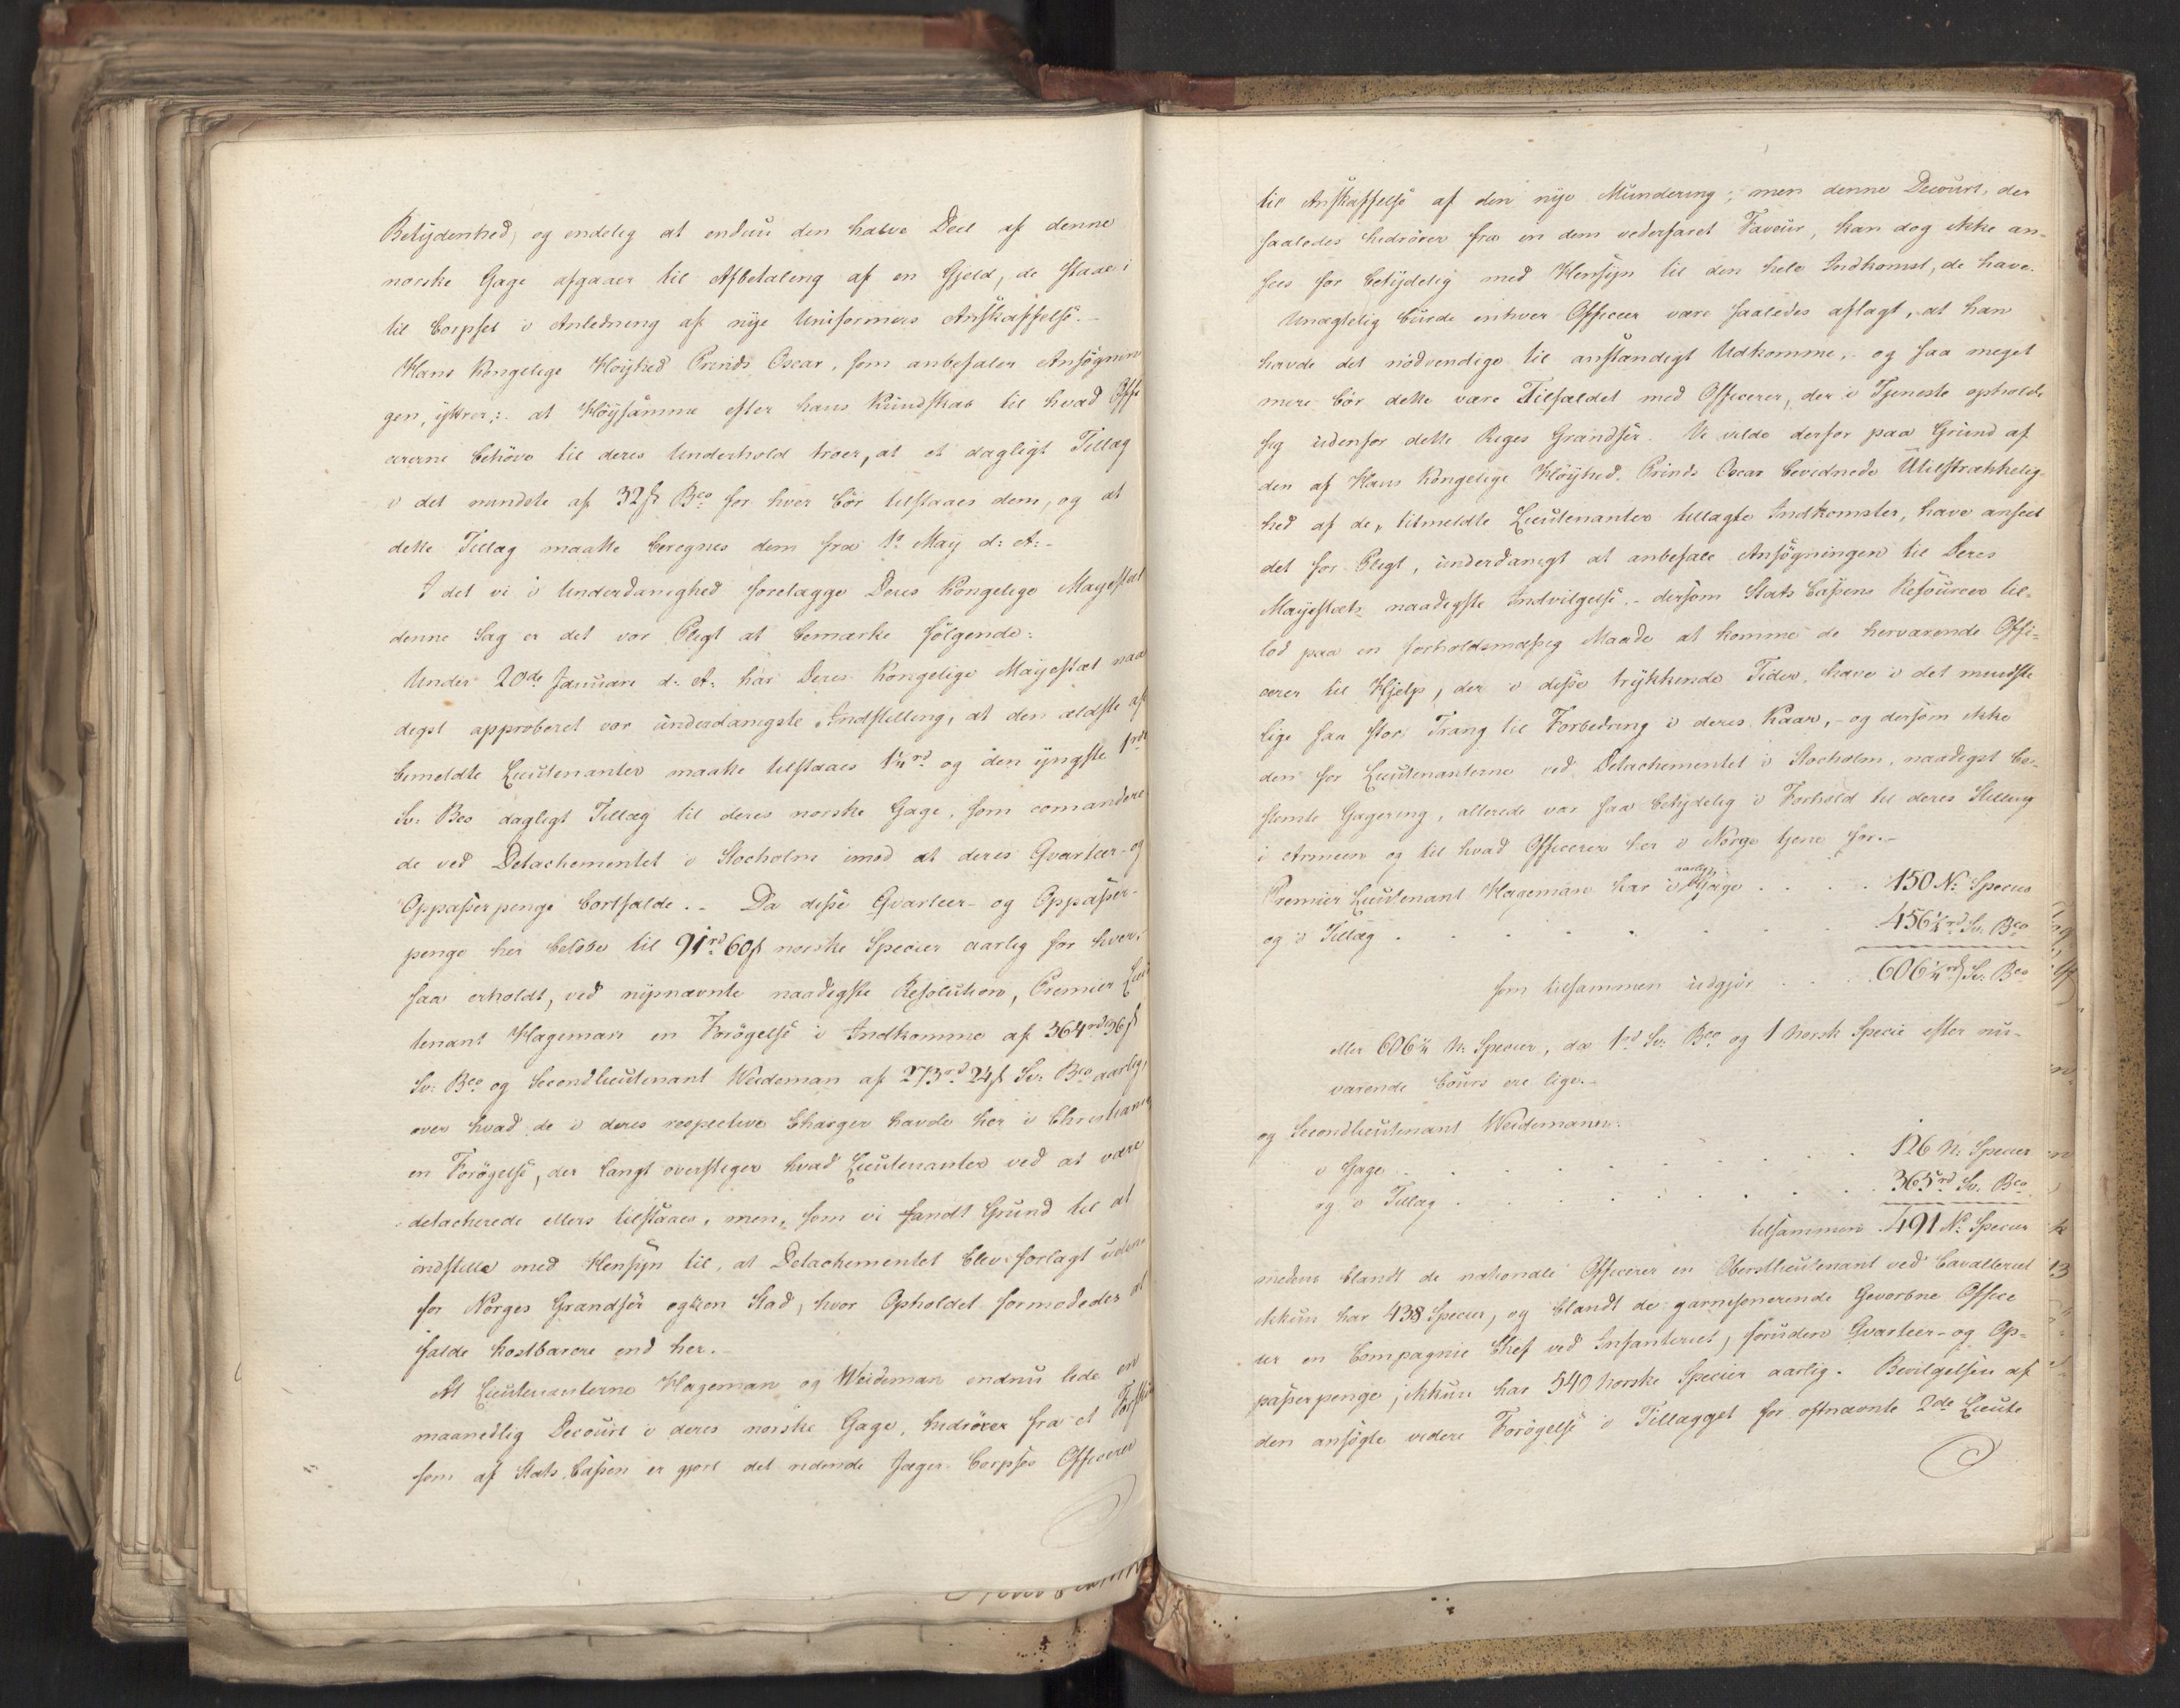 Betydenhed; og endelig at endnu den halve Deel af denne
norske Gage afgaaer til Afbetaling af en Gjeld, de staae i
til Corpset i Anledning af nye Uniformers Anskaffelse.-
Hans Kongelige Höyhed Prinds Oscar, som anbefaler Ansögnin
gen, yttrer: at Höysamme efter hans Kundskab til hvad Offi
cererne behöve til deres Underhold troer, at et dagligt Tillæg
i det mindste af 32 s Bco for hver bör tilstaaes dem, og at
dette Tillæg maatte beregnes dem fra 1te May d: A:-
I det vi i Underdanighed forelægge Deres Kongelige Mayestæt
denne Sag er det vor Pligt at bemærke fölgende:
Under 20de Januari d: A: har Deres Kongelige Mayestæt naa
digst approberet vor underdanigste Indstilling, at den ældste af
bemeldte Lieutenanter maatte tilstaaes 1¼ rd og den yngste 1 rd
Sv: Bco dagligt Tillæg til deres norske Gage, som comandere
de ved Detachementet i Stocholm imod at deres Qvarteer- og
Oppasserpenge bortfaldt.- Da disse Qvarteer- og Oppasser-
penge her belöbe til 91 rd 60 s norske Specier aarlig for hver,
saa erholdt, ved nysnævnte naadigste Resolution, Premier Lieu
tenant Hageman en Forögelse i Indkomme af 364 rd 36 s
Sv: Bco og Secondlieutenant Weideman af 273 rd 24 s Sv: Bco aarlig,
over hvad de i deres respective Charger havde her i Christiania
en Forögelse, der langt overstiger hvad Lieutenanter ved at være
detacherede ellers tilstaaes, men, som vi fandt Grund til at
indstille med Hensyn til, at Detachementet blev forlagt uden
for Norges Grændser og i en Stad, hvor Opholdet formodedes at
falde kostbarere end her.-
At Lieutenanterne Hageman og Weideman endnu lide en
maanedlig Decourt i deres norske Gage, hidrörer fra et Forskud
som af Stats-Cassen er gjort det ridende Jæger-Corpses Officerer
til Anskaffelse af den nye Mundering; men denne Decourt, der
saaledes hidrörer fra en dem vederfaret Faveur, kan dog ikke an-
sees for betydelig med Hensyn til den hele Indkomst, de have.
Unægtelig burde enhver Officeer være saaledes aflagt, at han
havde det nödvendige til anstændigt Udkomme, og saa meget
mere bör dette være Tilfældet med Officerer, der i Tjeneste opholde
sig udenfor dette Riges Grændser. Vi vilde derfor paa Grund af
den af Hans Kongelige Höyhed Prinds Oscar bevidnede Utilstrækkelig-
hed af de, titmeldte Lieutenanter tillagte Indkomster, have anseet
det for Pligt, underdanigst at anbefale Ansögningen til Deres
Mayestæts naadigste Indvilgelse,- dersom Stats Cassens Resourcer til-
lod paa en forholdsmæssig Maade at komme de herværende Offi-
cerer til Hjelp, der i disse trykkende Tider, have i det mindste
lige saa stor Trang til Forbedring i deres Kaar,- og dersom ikke
den for Lieutenanterne ved Detachementet i Stocholm, naadigst be-
stemte Gagering, allerede var saa betydelig i Forhold til deres Stilling
i Armeen og til hvad Officerer her i Norge tjene for.-
Premier Lieutenant Hageman har i aarlig Gage . . . . 150 N: Specier
og i Tillæg . . . . . . 456¼ rd Sv: Bco
som tilsammen udgjör . . . 606¼ rd Sv: Bco
eller 606¼ N: Specier, da 1 rd Sv: Bco og 1 Norsk Specie efter nu-
værende Cours ere lige.-
og Secondlieutenant Weidemann:
i Gage . . . . . . . 126 N: Specier
og i Tillæg . . . . . . . 365 rd Sv: Bco
tilsammen . 491 N: Specier
medens blandt de nationale Officerer en Oberstlieutenant ved Cavalleriet
ikkun har 438 Specier, og blandt de garnisonerende Gevorbne Office
rer en Compagnie Chef ved Infanteriet, foruden Qvarteer- og Op-
passerpenge, ikkun har 540 Norske Specier aarlig. Bevilgelsen af
den ansögte videre Forögelse i Tillægget for oftnævnte 2de Lieute